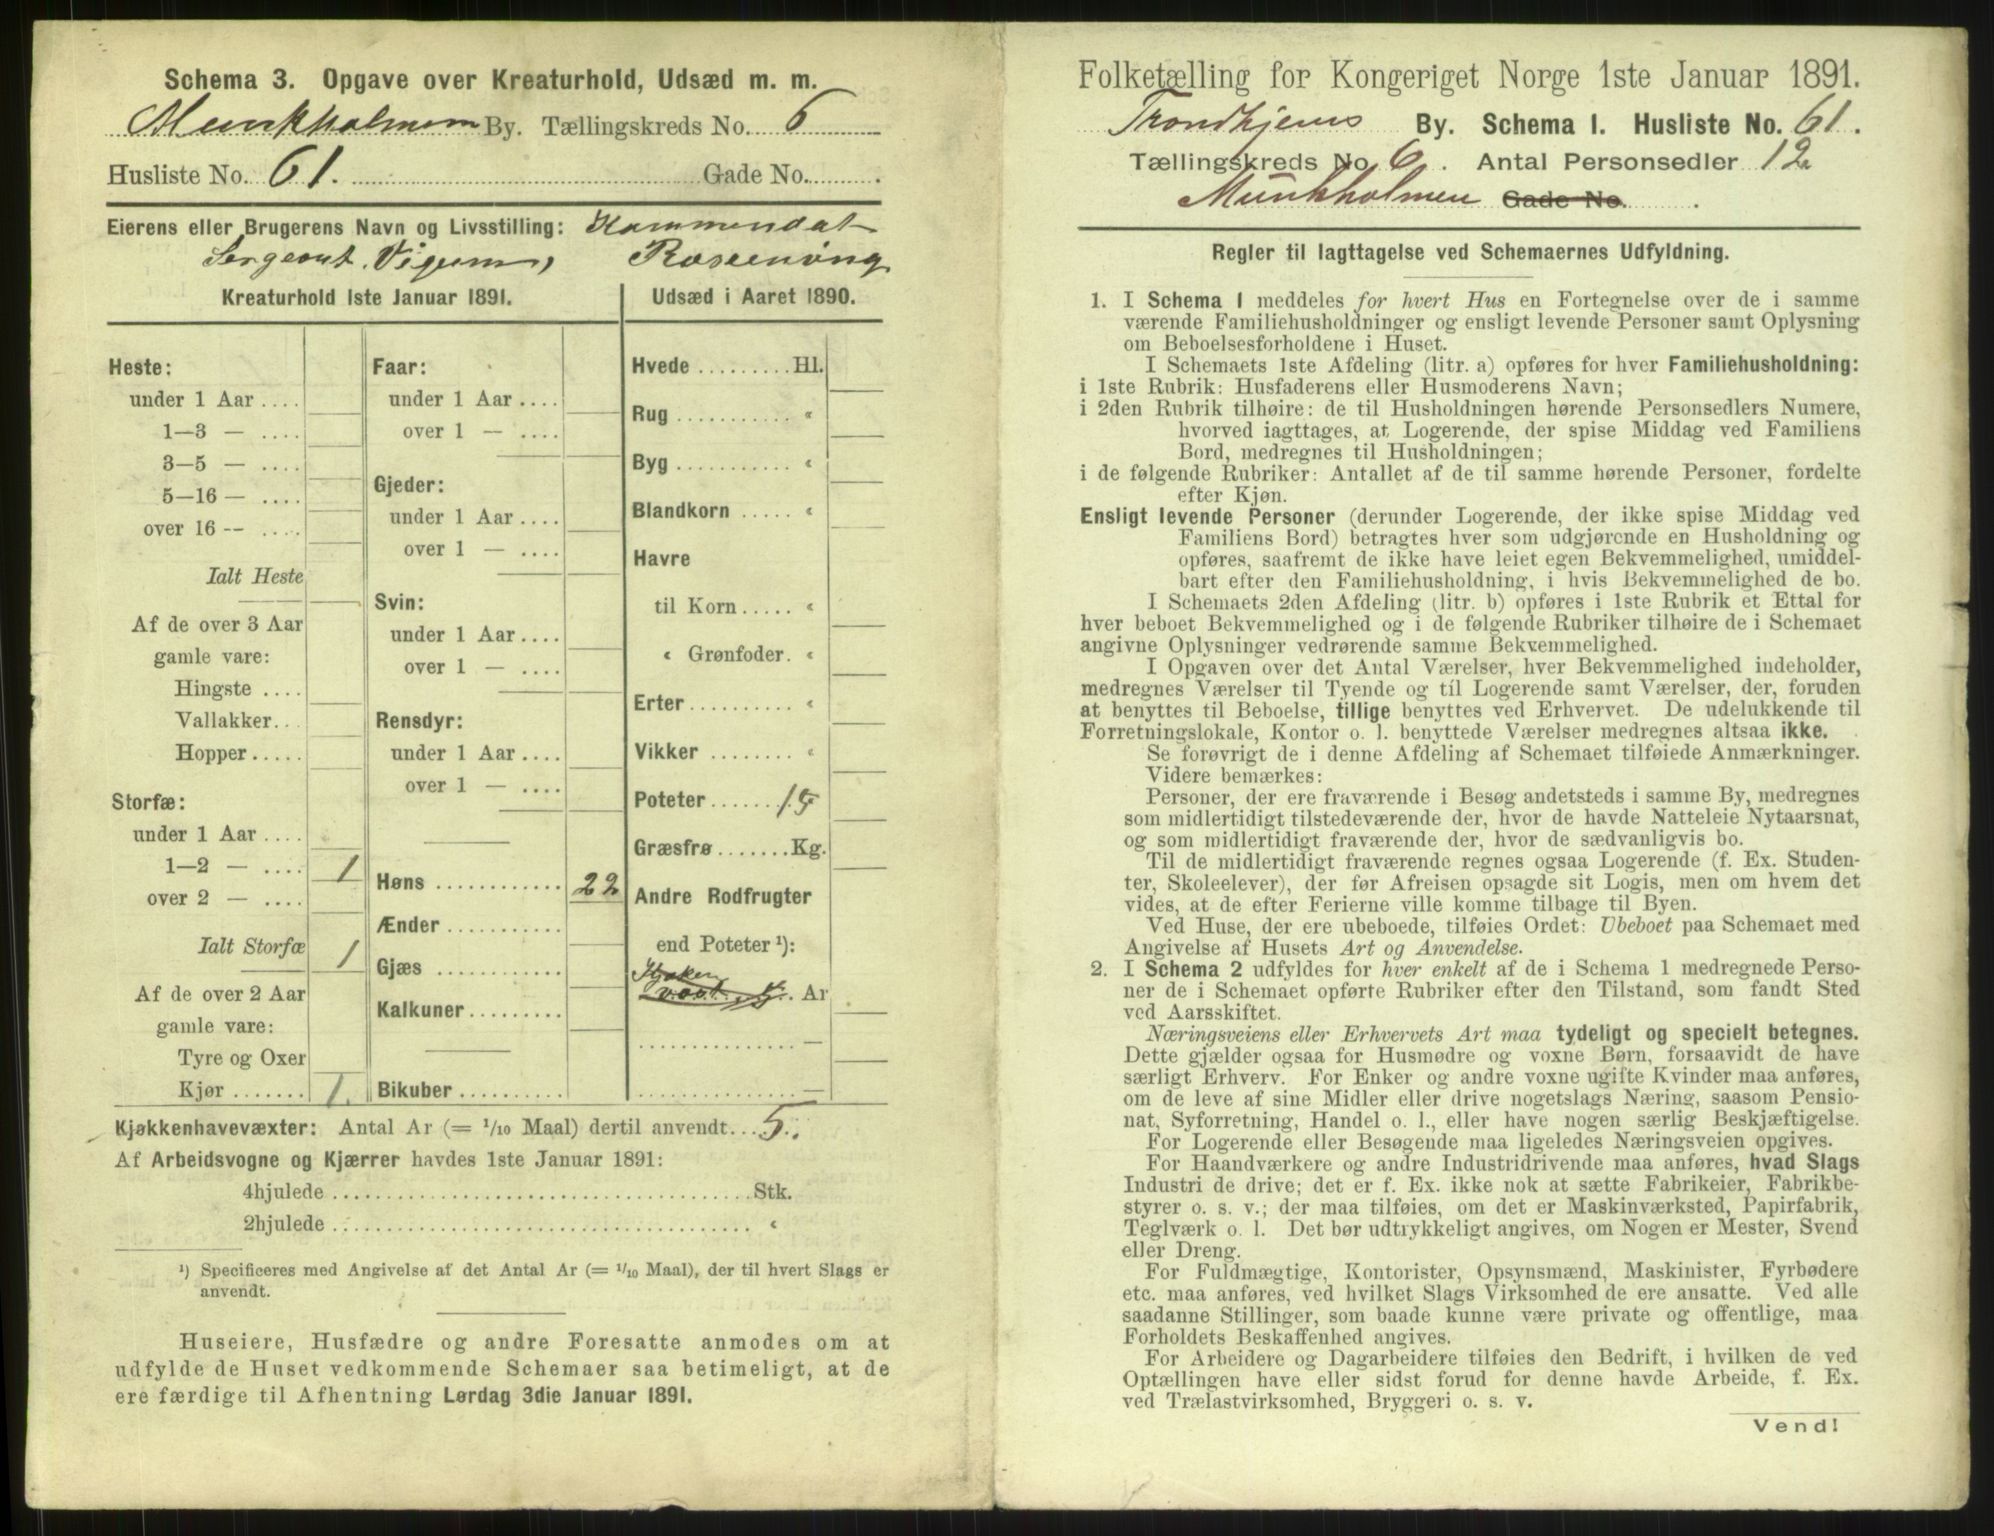 Schema 3. Opgave over Kreaturhold, Udsæd m. m.
Munkholmen By. Tællingskreds No. 6
Husliste No. 61. Gade No. .
Eierens eller Brugerens Navn og Livsstilling: Kommendat
Sergeant Vigum, Rosenving
Kreaturhold 1ste Januar 1891.
Heste:
under 1 Aar ....
1—3 — ....
3—5 — ....
5—16 — ....
over 16 -- ....
Ialt Heste
Af de over 3 Aar
gamle vare:
Hingste ....
Vallakker...
Hopper.....
Storfæ:
under 1 Aar ....
1—2 — .... 1
over 2 — ....
Ialt Storfæ 1
Af de over 2 Aar
gamle vare:
Tyre og Oxer
Kjør ....... 1.
Faar:
under 1 Aar ....
over 1 — ....
Gjeder:
under 1 Aar ....
over 1 — ....
Svin:
under 1 Aar ....
over 1 — ....
Rensdyr:
under 1 Aar ....
over 1 — ....
Høns ............ 22
Ænder ...........
Gjæs ............
Kalkuner.........
Bikuber ..........
Udsæd i Aaret 1890.
Hvede ......... Hl.
Rug ............ «
Byg ............ «
Blandkorn ..... «
Havre
til Korn ..... «
« Grønfoder. «
Erter .......... «
Vikker ........ «
Poteter ....... 1
Græsfrø ....... Kg.
Andre Rodfrugter
end Poteter ¹):
Ar
—
—
Kjøkkenhavevæxter: Antal Ar (= 1/10 Maal) dertil anvendt... 5.
Af Arbeidsvogne og Kjærrer havdes 1ste Januar 1891:
4hjulede ........................ Stk.
2hjulede ........................ «
¹) Specificeres med Angivelse af det Antal Ar (= 1/10 Maal), der til hvert Slags er
anvendt.
Huseiere, Husfædre og andre Foresatte anmodes om at
udfylde de Huset vedkommende Schemaer saa betimeligt, at de
ere færdige til Afhentning Lørdag 3die Januar 1891.
Folketælling for Kongeriget Norge 1ste Januar 1891.
Trondhjems By. Schema 1. Husliste No. 61.
Tællingskreds No. 6. Antal Personsedler 12
Munkholmen Gade No. .
Regler til Iagttagelse ved Schemaernes Udfyldning.
1. I Schema 1 meddeles for hvert Hus en Fortegnelse over de i samme
værende Familiehusholdninger og ensligt levende Personer samt Oplysning
om Beboelsesforholdene i Huset.
I Schemaets 1ste Afdeling (litr. a) opføres for hver Familiehusholdning:
i 1ste Rubrik: Husfaderens eller Husmoderens Navn;
i 2den Rubrik tilhøire: de til Husholdningen hørende Personsedlers Numere,
hvorved iagttages, at Logerende, der spise Middag ved Familiens
Bord, medregnes til Husholdningen;
i de følgende Rubriker: Antallet af de til samme hørende Personer, fordelte
efter Kjøn.
Ensligt levende Personer (derunder Logerende, der ikke spise Middag ved
Familiens Bord) betragtes hver som udgjørende en Husholdning og
opføres, saafremt de ikke have leiet egen Bekvemmelighed, umiddel-
bart efter den Familiehusholdning, i hvis Bekvemmelighed de bo.
I Schemaets 2den Afdeling (litr. b) opføres i 1ste Rubrik et Ettal for
hver beboet Bekvemmelighed og i de følgende Rubriker tilhøire de i Schemaet
angivne Oplysninger vedrørende samme Bekvemmelighed.
I Opgaven over det Antal Værelser, hver Bekvemmelighed indeholder,
medregnes Værelser til Tyende og til Logerende samt Værelser, der, foruden
at benyttes til Beboelse, tillige benyttes ved Erhvervet. De udelukkende til
Forretningslokale, Kontor o. l. benyttede Værelser medregnes altsaa ikke.
Se forøvrigt de i denne Afdeling af Schemaet tilføiede Anmærkninger.
Videre bemærkes:
Personer, der ere fraværende i Besøg andetsteds i samme By, medregnes
som midlertidigt tilstedeværende der, hvor de havde Natteleie Nytaarsnat,
og som midlertidigt fraværende der, hvor de sædvanligvis bo.
Til de midlertidigt fraværende regnes ogsaa Logerende (f. Ex. Studen-
ter, Skoleelever), der før Afreisen opsagde sit Logis, men om hvem det
vides, at de efter Ferierne ville komme tilbage til Byen.
Ved Huse, der ere ubeboede, tilføies Ordet: Ubeboet paa Schemaet med
Angivelse af Husets Art og Anvendelse.
2. I Schema 2 udfyldes for hver enkelt af de i Schema 1 medregnede Perso-
ner de i Schemaet opførte Rubriker efter den Tilstand, som fandt Sted
ved Aarsskiftet.
Næringsveiens eller Erhvervets Art maa tydeligt og specielt betegnes.
Dette gjælder ogsaa for Husmødre og voxne Børn, forsaavidt de have
særligt Erhverv. For Enker og andre voxne ugifte Kvinder maa anføres,
om de leve af sine Midler eller drive nogetslags Næring, saasom Pensio-
nat, Syforretning, Handel o. l., eller have nogen særlig Beskjæftigelse.
For Logerende eller Besøgende maa ligeledes Næringsveien opgives.
For Haandværkere og andre Industridrivende maa anføres, hvad Slags
Industri de drive; det er f. Ex. ikke nok at sætte Fabrikeier, Fabrikbe-
styrer o. s. v.; der maa tilføies, om det er Maskinværksted, Papirfabrik,
Teglværk o. l. Det bør udtrykkeligt angives, om Nogen er Mester, Svend
eller Dreng.
For Fuldmægtige, Kontorister, Opsynsmænd, Maskinister, Fyrbødere
etc. maa anføres, ved hvilket Slags Virksomhed de ere ansatte. Ved alle
saadanne Stillinger, som baade kunne være private og offentlige, maa
Forholdets Beskaffenhed angives.
For Arbeidere og Dagarbeidere tilføies den Bedrift, i hvilken de ved
Optællingen have eller sidst forud for denne havde Arbeide, f. Ex.
ved Trælastvirksomhed, Bryggeri o. s. v.
Vend!